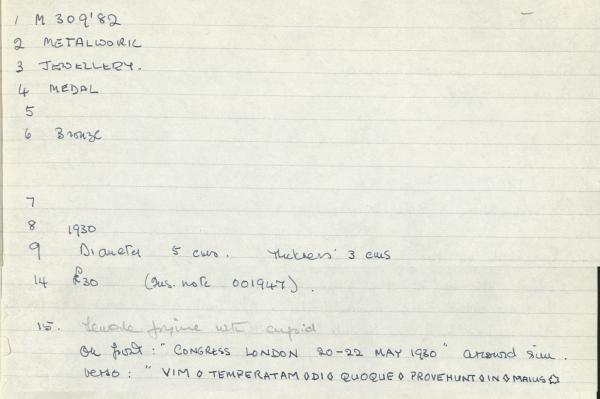 1 M 309'82
2 METALWORK
3 JEWELLERY.
4 MEDAL
5
6 Bronze
7
8 1930
9 Diameter 5 cms. Thickness 3 cms
14 £30 (Ins. note 001947).
15. Female figure with cupid.
On front: "CONGRESS LONDON 20-22 MAY 1930" around rim.
Verso: "VIM ◇ TEMPERATAM ◇ DI ◇ QUOQUE ◇ PROVEHUNT ◇ IN ◇ MAIUS ☆